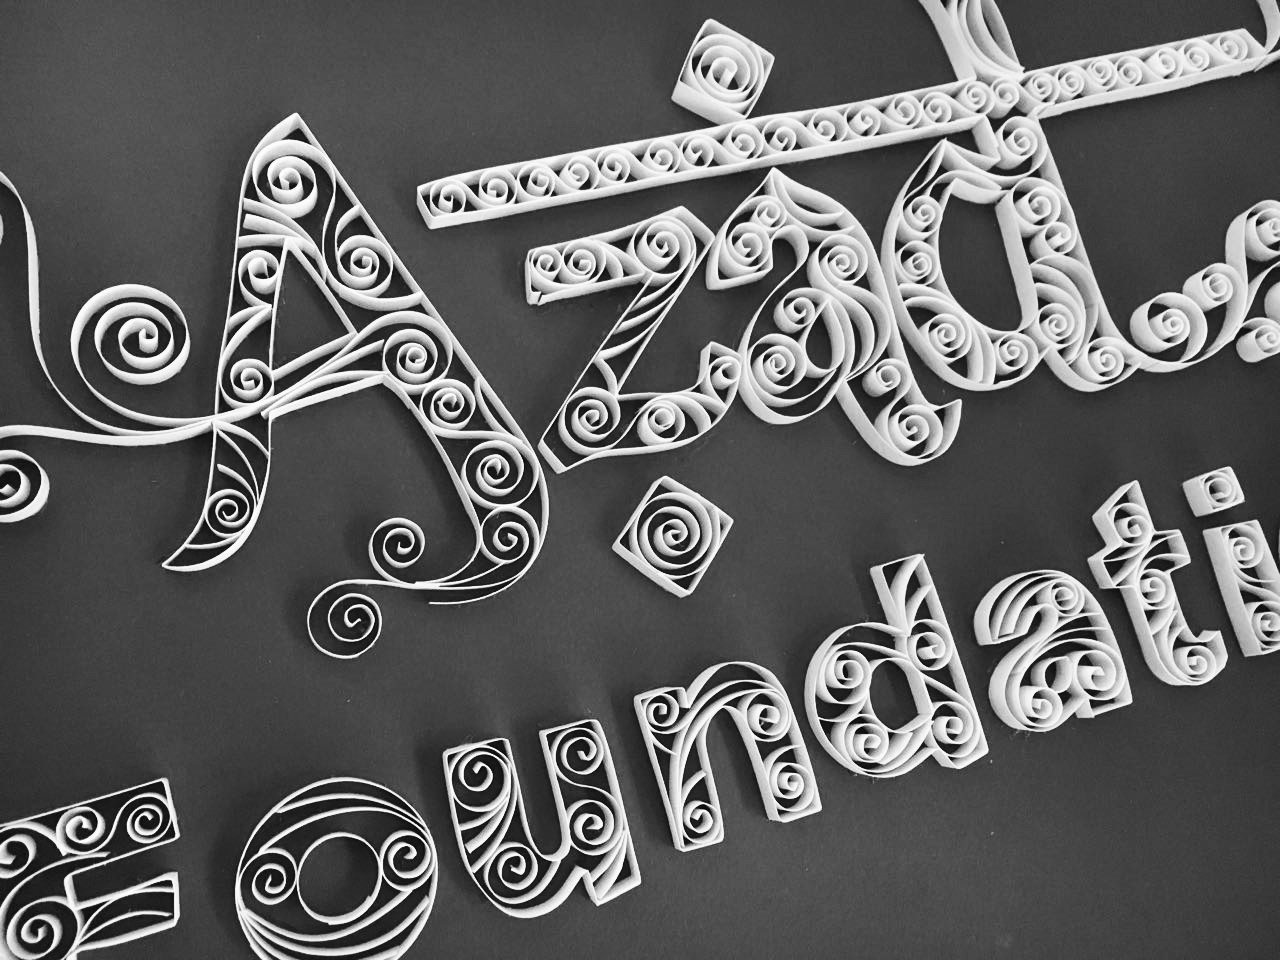 Azad
Foundati